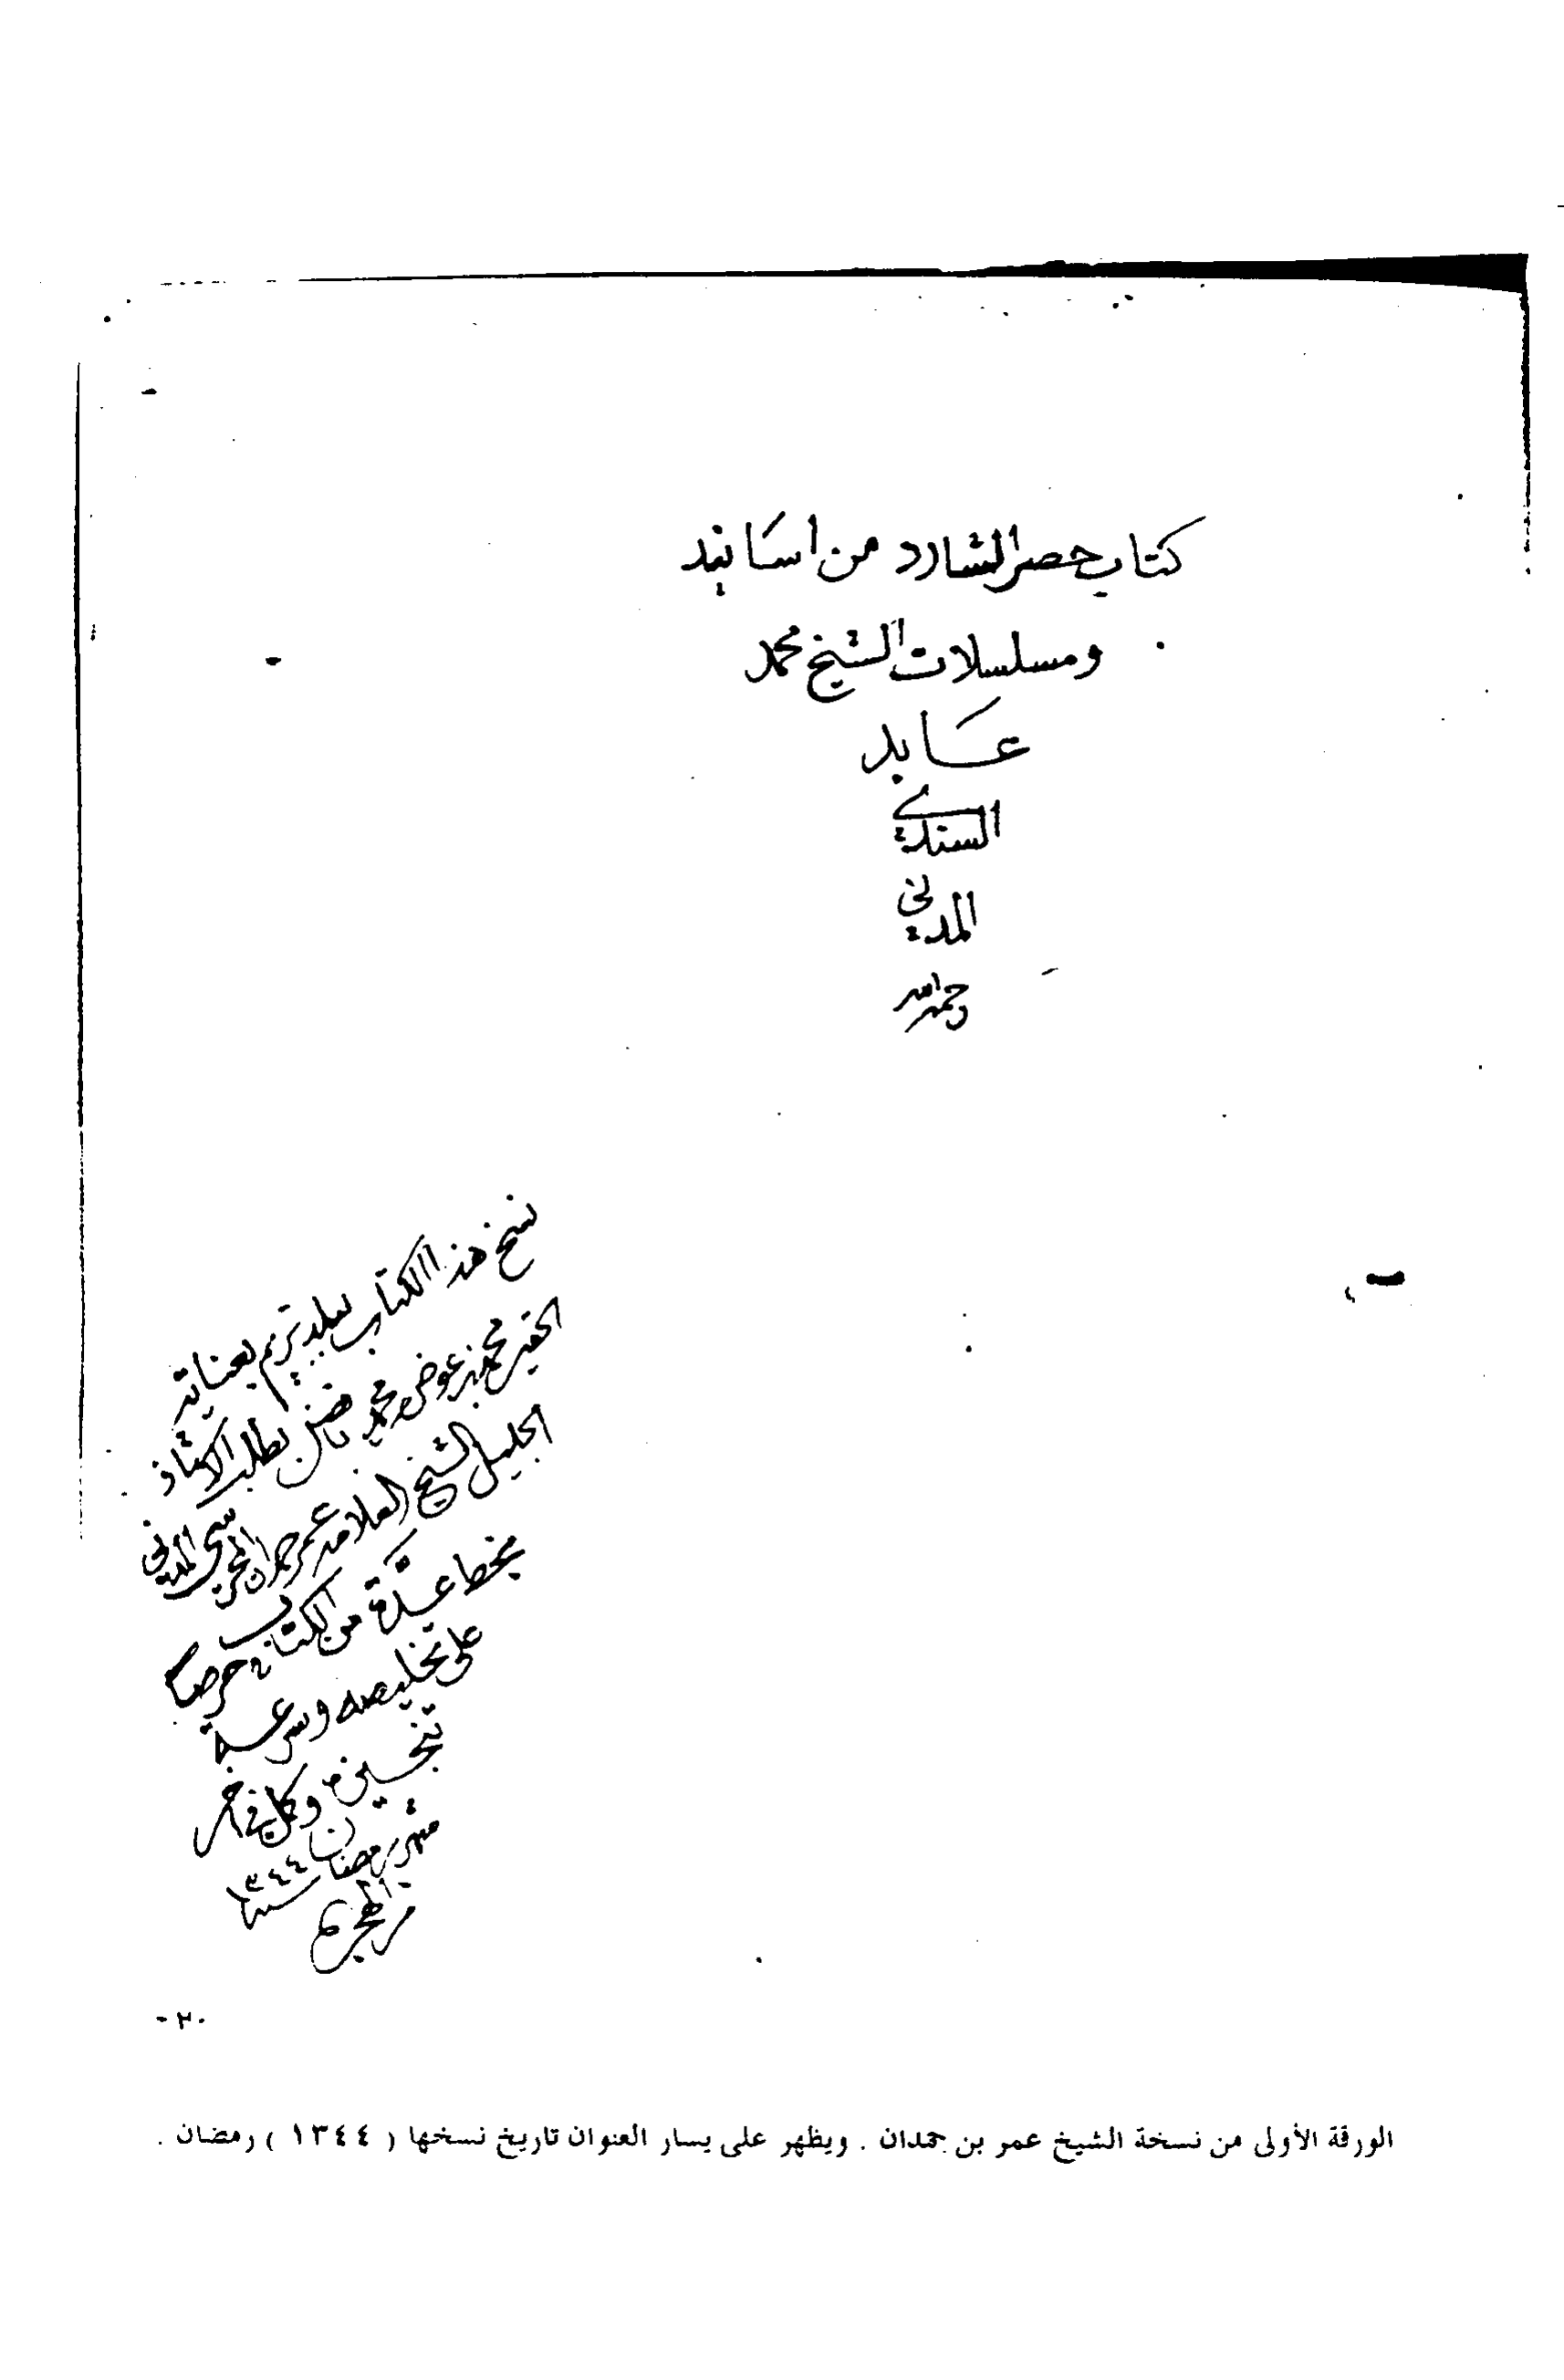 كتاب حصر الشارد من اسانيد
ومسلسلات الشيخ محمد
عابد
السندي
المدني
رحمه الله
نسخ هذا الكتاب ببلد تريم بعناية
الحقير محمد بن عوض محمد بافضل بطلب الاستاذ
الجليل الشيخ العلامه عمر حمدان المحرسي المدني
بخط عدة من الكتاب حرصا
على تخليصه وسرعة
تنجيزه وكان في
شهر رمضان سنة ١٣٤٤
من الهجرة
٢٠ -
الورقة الأولى من نسخة الشيخ عمر بن حمدان . ويظهر على يسار العنوان تاريخ نسخها ( ١٣٤٤ ) رمضان .